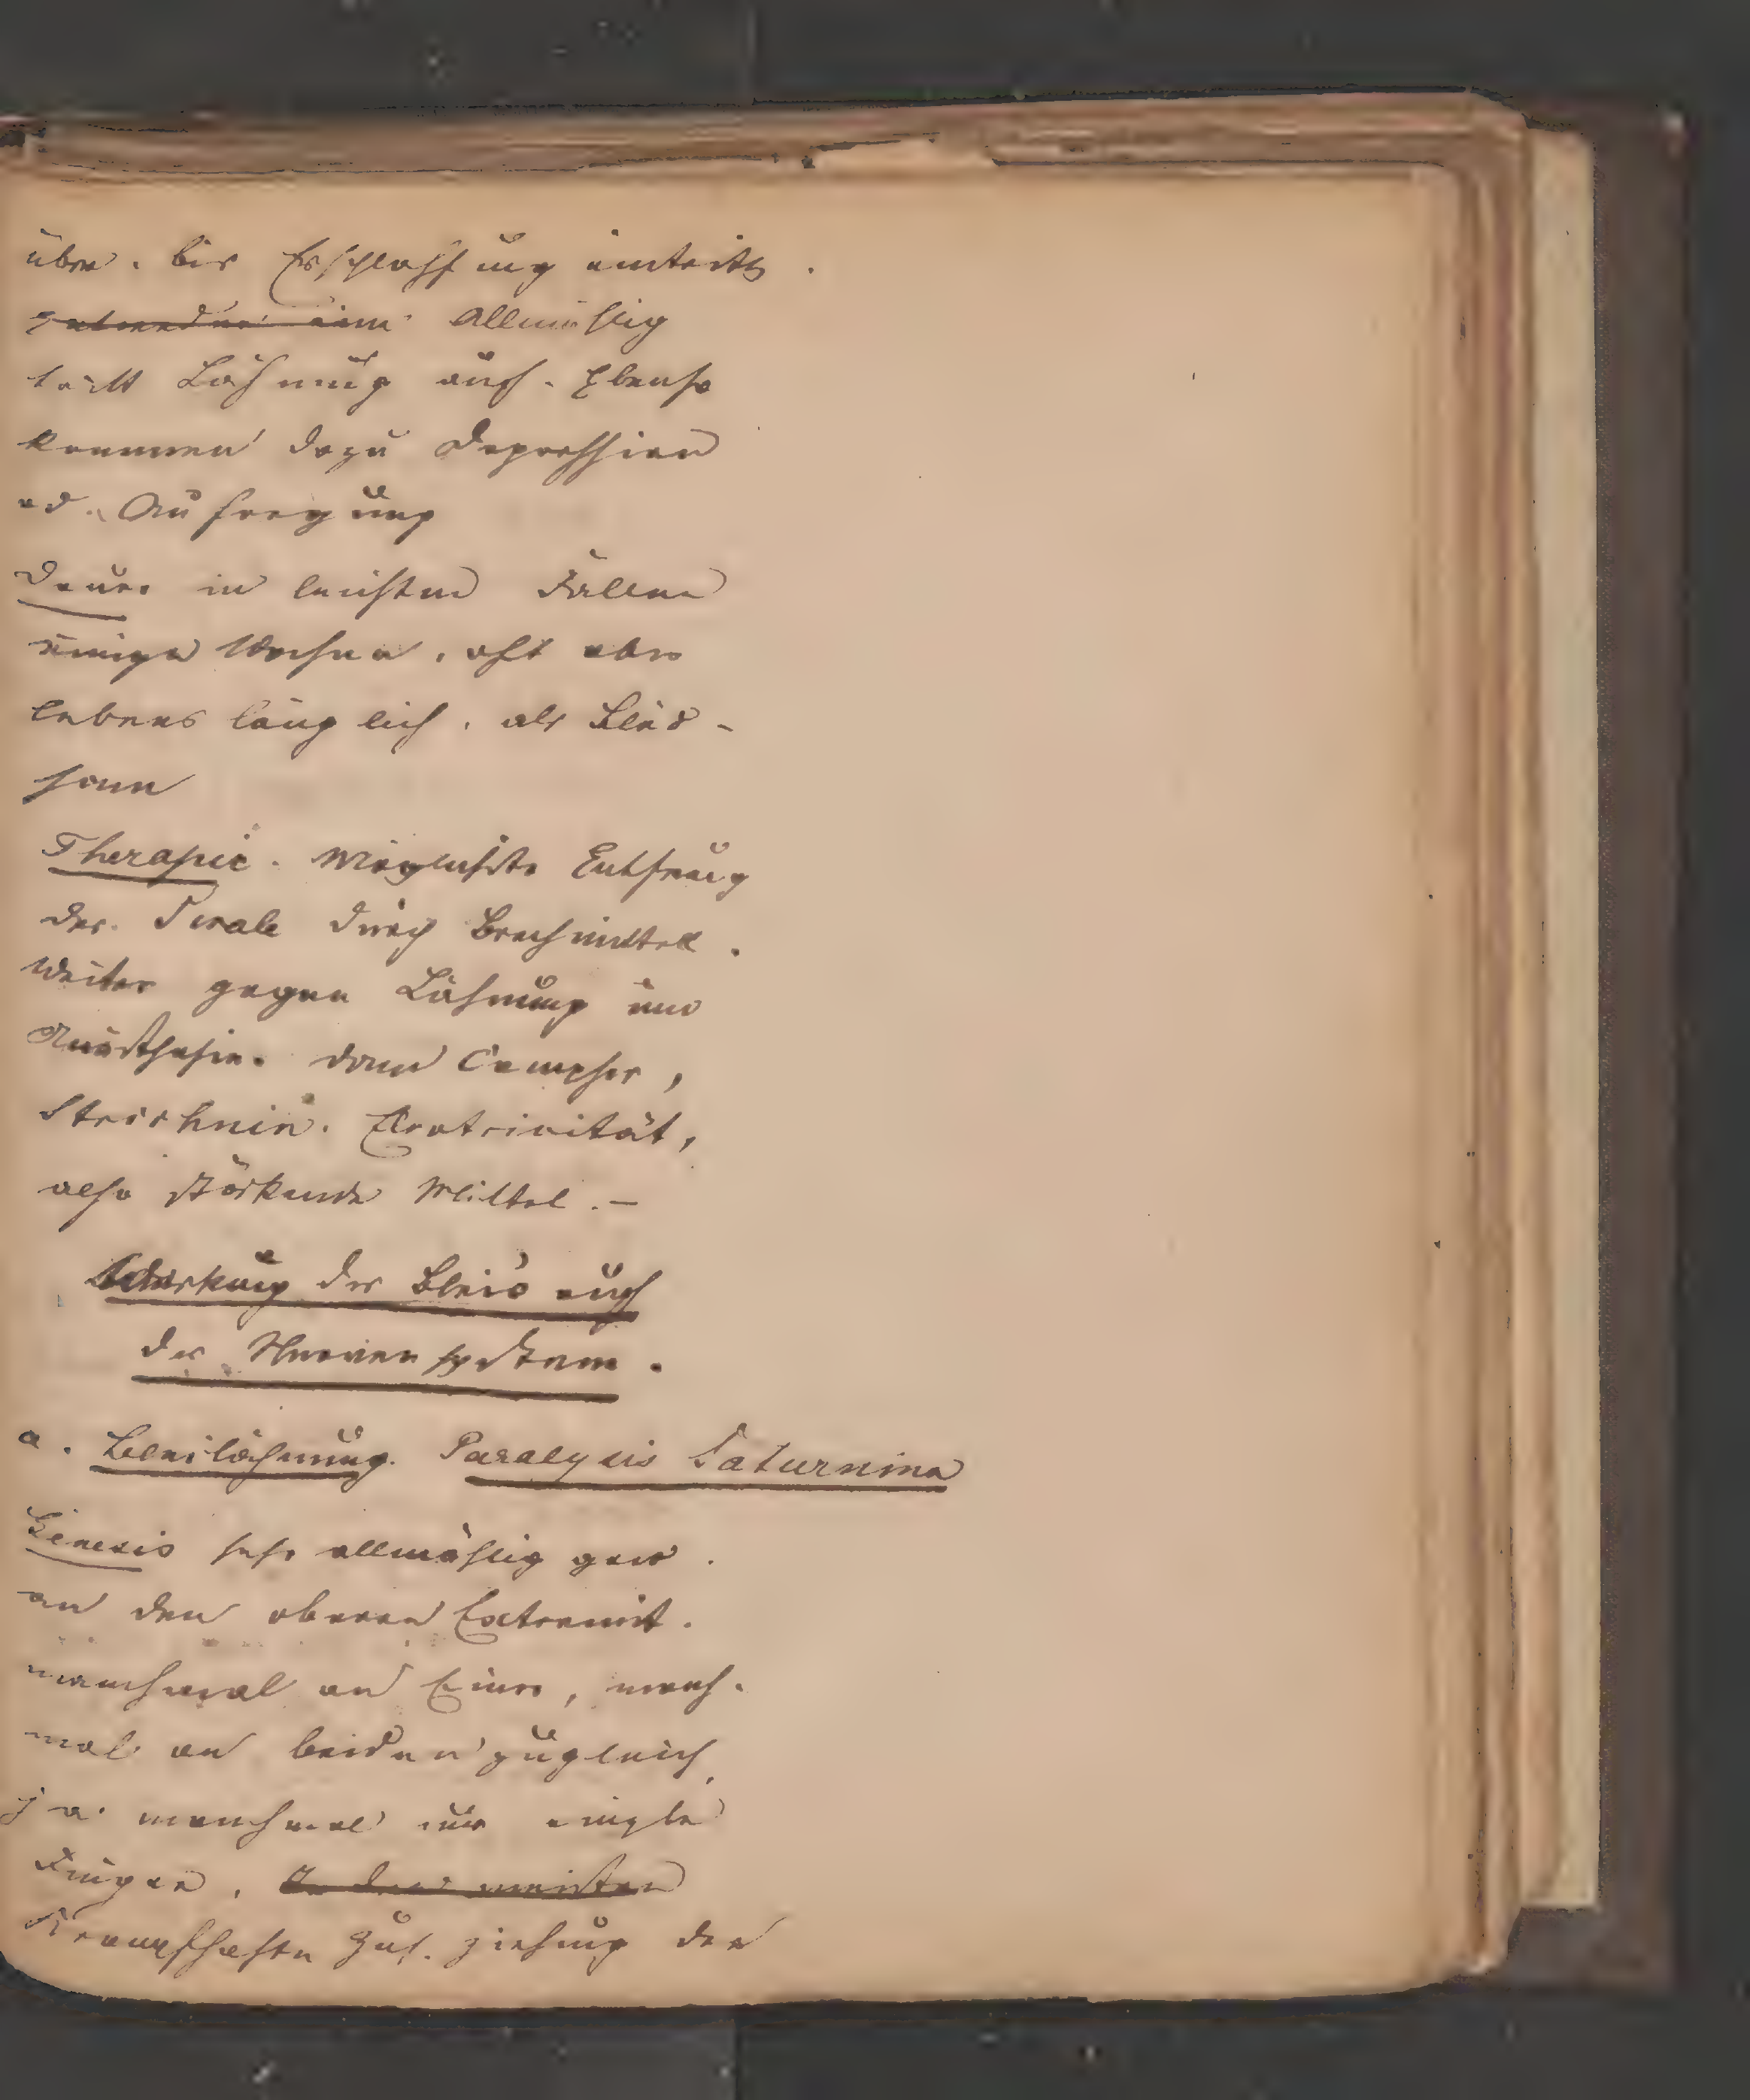 über. bis Erschlaffung eintritt.
entweder eine Allmählig
tritt Lähmung auf. Ebenso
kommen dazu Depression
od. Aufregung
Dauer in leichten Fällen
einige Wochen, oft aber
lebenslänglich, als Blöd-
sinn
Therapie. Möglichste Entfernung
der Secale durch Brechmittel.
Weiter gegen Lähmung und
Anästhesie. dann Campher,
Strichnin. Electricität,
also stärkende Mittel. –
Wirkung des Bleis auf
das Nervensystem.
a. Bleilähmung. Paralysis Saturnina
Genesis sehr allmählig gew.
an den oberen Extremit.
manchmal an Einer, manch-
mal an beiden zugleich,
ja manchmal nur einzle
Finger. In den meisten
Krampfhafte Zus. ziehung der